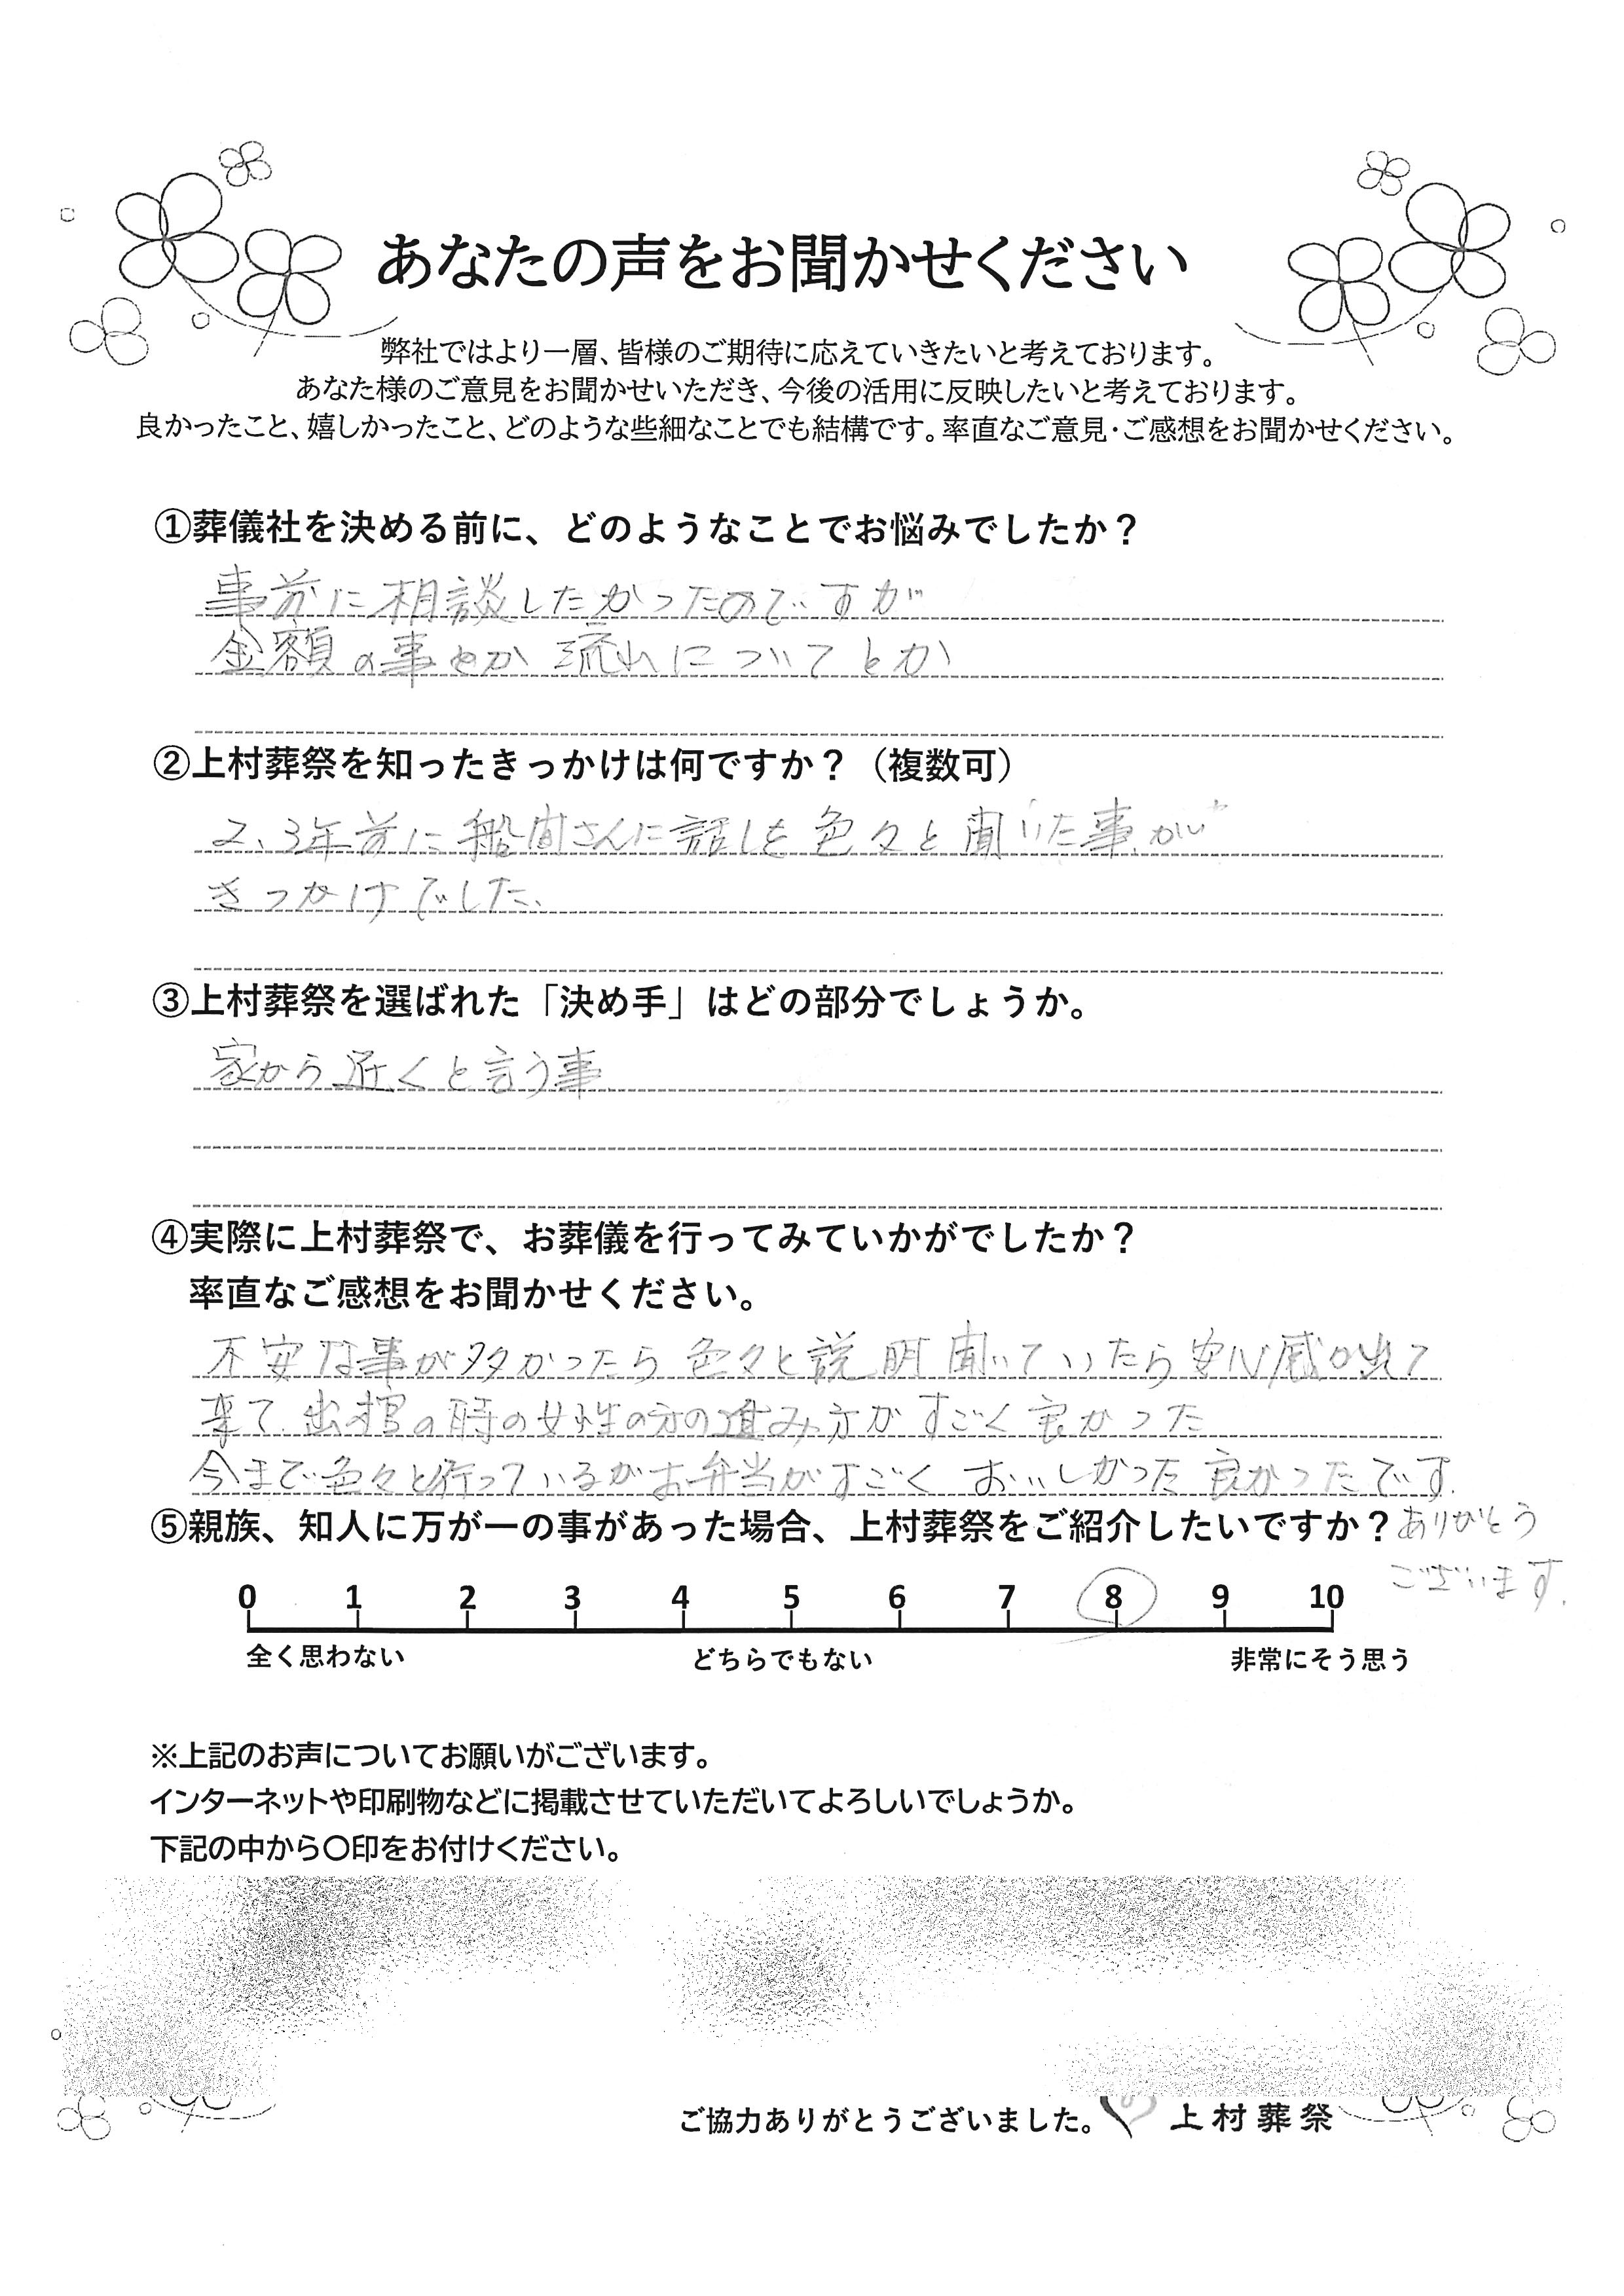 あなたの声をお聞かせください
弊社ではより一層、皆様のご期待に応えていきたいと考えております。
あなた様のご意見をお聞かせいただき、今後の活用に反映したいと考えております。
良かったこと、嬉しかったこと、どのような些細なことでも結構です。率直なご意見・ご感想をお聞かせください。
①葬儀社を決める前に、どのようなことでお悩みでしたか？
事前に相談したかったのですが
金額の事とか 流れについてとか
②上村葬祭を知ったきっかけは何ですか？（複数可）
2、3年前に船間さんに話しを色々と聞いた事が
きっかけでした、
③上村葬祭を選ばれた「決め手」はどの部分でしょうか。
家から近くと言う事
④実際に上村葬祭で、お葬儀を行ってみていかがでしたか？
率直なご感想をお聞かせください。
不安な事が多かったら色々と説明聞いていたら安心感が出て
来て、出棺の時の女性の方の進み方がすごく良かった
今まで色々と行っているがお弁当がすごくおいしかった良かったです.
⑤親族、知人に万が一の事があった場合、上村葬祭をご紹介したいですか？
ありがとう
ございます.
0 1 2 3 4 5 6 7 8 9 10
全く思わない どちらでもない 非常にそう思う
※上記のお声についてお願いがございます。
インターネットや印刷物などに掲載させていただいてよろしいでしょうか。
下記の中から〇印をお付けください。
ご協力ありがとうございました。 上村葬祭